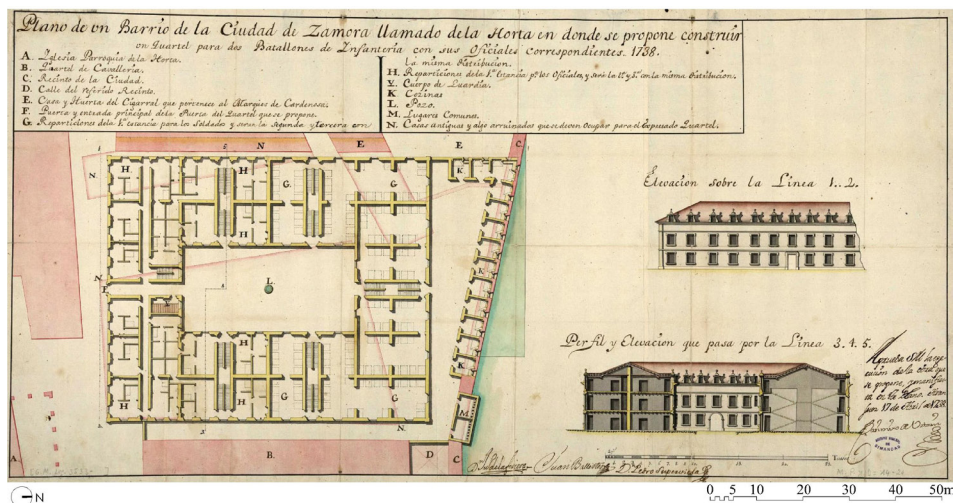 Plano de vn Barrio de la Ciudad de Zamora llamado de la Horta en donde se propone construir
vn Quartel para dos Batallones de Infanteria con sus Oficiales Correspondientes. 1738.
A. Iglesia Parroquia de la Horta.
B. Quartel de Cavalleria.
C. Recinto de la Ciudad.
D. Calle del referido Recinto.
E. Casa y Huerta del Cigarral que pertenece al Marques de Cardenosa.
F. Puerta y entrada principal de la Puerta del Quartel que se propone.
G. Reparticiones de la 1.ª estancia para los Soldados y seran la segunda y tercera con
la misma distribucion.
H. Reparticiones de la 1.ª Estancia p.ª los Oficiales, y será la 2.ª y 3.ª con la misma distribucion.
Y. Cuerpo de Guardia.
K. Cozinas
L. Pozo.
M. Lugares Comunes.
N. Casas antiguas y algo arruinadas que se deven Ocupar para el Expresado Quartel.
Elevacion sobre la Linea 1..2.
Perfil y Elevacion que pasa por la Linea 3.4.5.
17 de Abril de 1738
N
0 5 10 20 30 40 50m